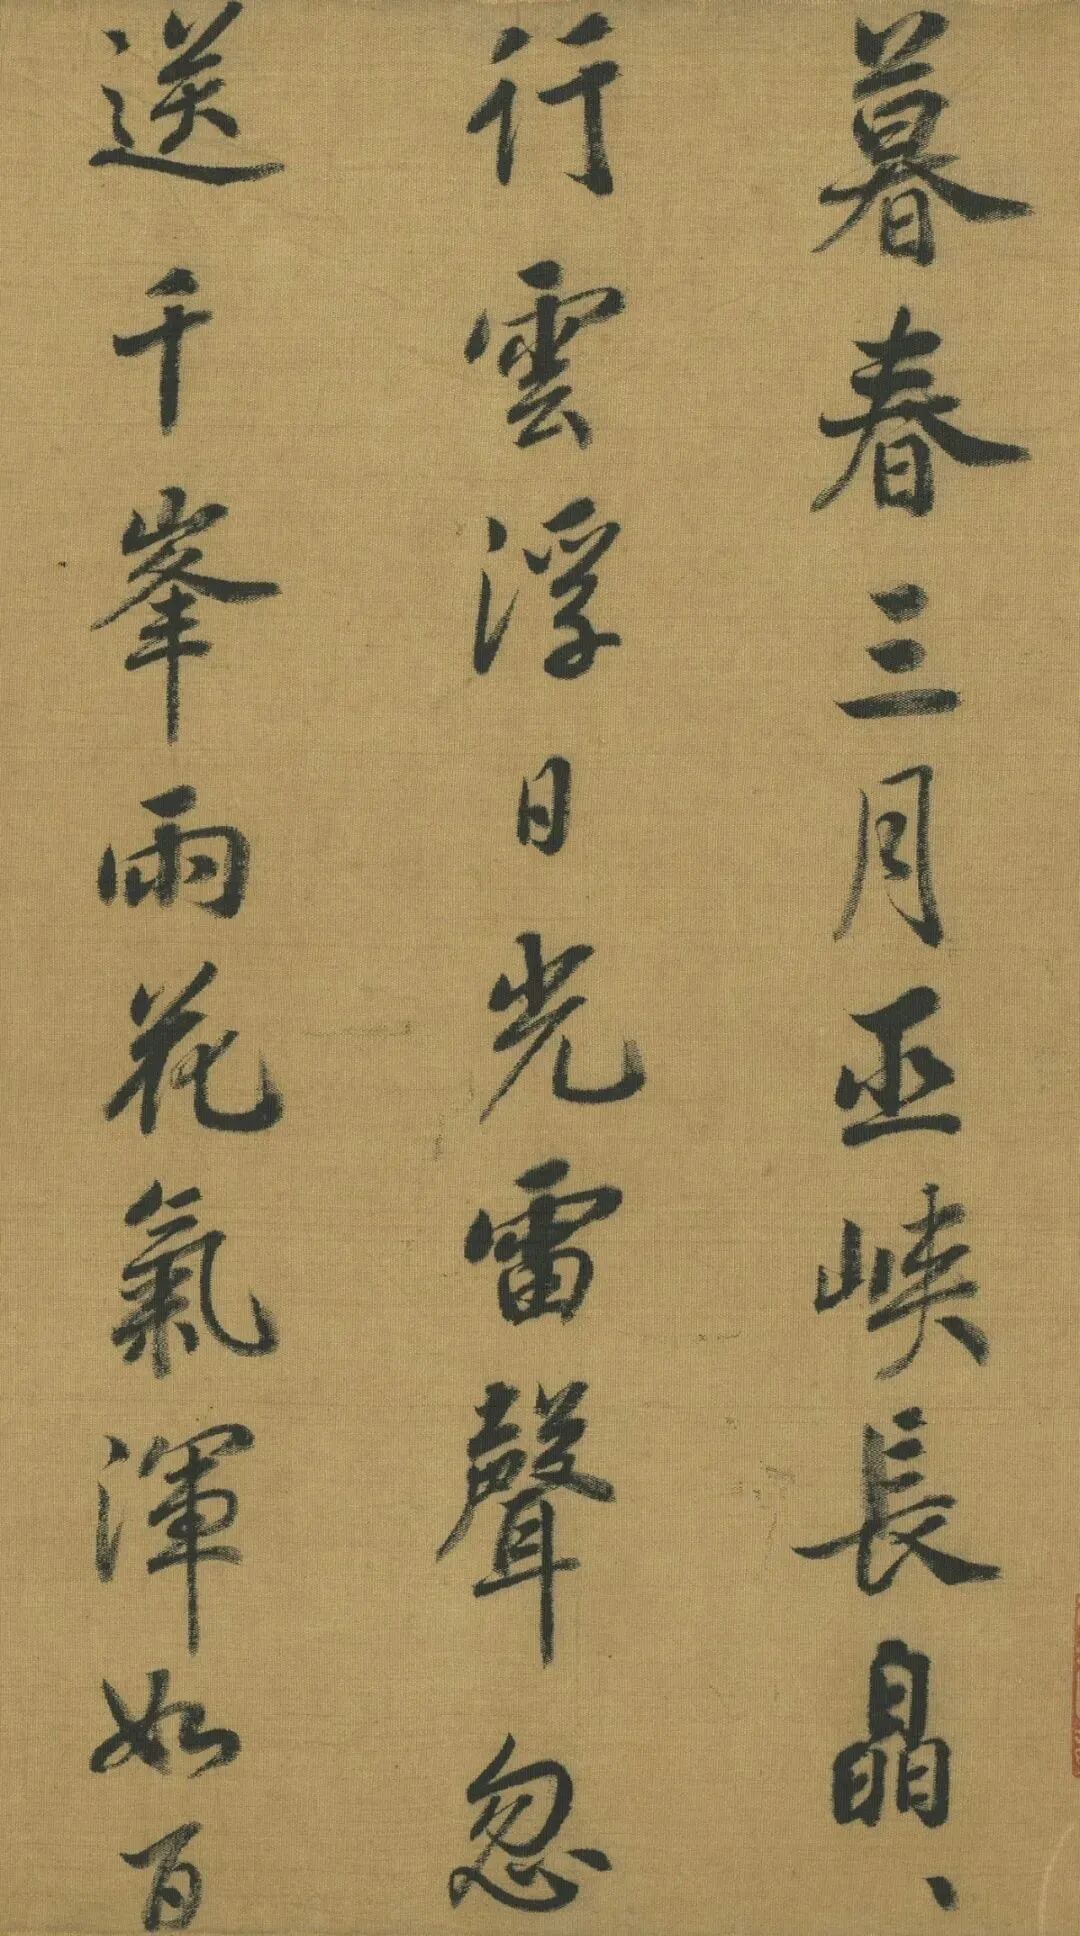 暮春三月巫峽長晶、
行雲浮日光雷聲忽
送千峯雨花氣渾如百